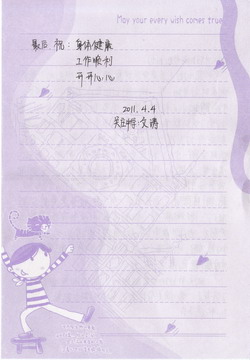 May your every wish comes true
最后 祝：身体健康
工作顺利
开开心心
2011.4.4